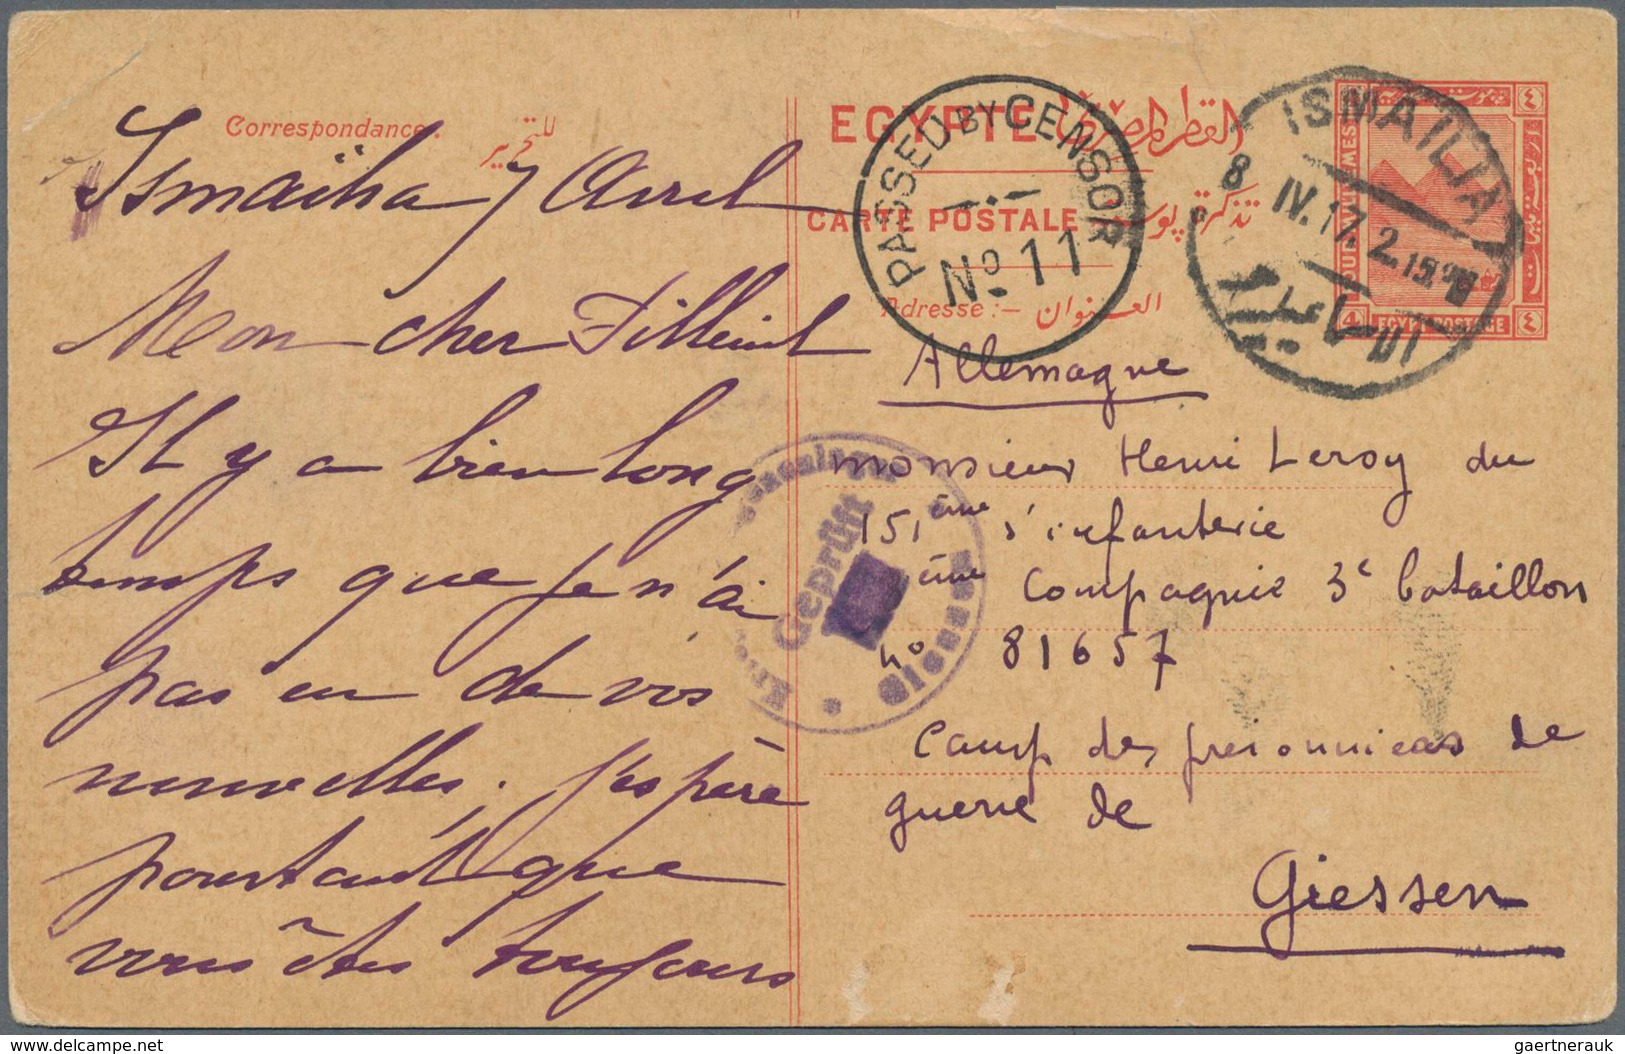 Correspondance.
للتحرير
Ismaïlia 7 Avril
Mon cher Filleul
Il y a bien long
temps que je n'ai
pas eu de vos
nouvelles. j'espère
pourtant que
vous êtes toujours
EGYPTE القطر المصرى
CARTE POSTALE تذكرة پوستة
Adresse :– العنوان
PASSED BY CENSOR
No 11
ISMAILIA
8 IV.17. 2.15
الاسماعيلية
EGYPT POSTAGE
4
٤
Geprüft
Giessen
Allemagne
monsieur Henri Leroy du
151ème d'infanterie
ème Compagnie 3e bataillon
no 81657
Camp des prisonniers de
guerre de
Giessen
gaertnerauk
delcampe.net
gaertnerauk.com